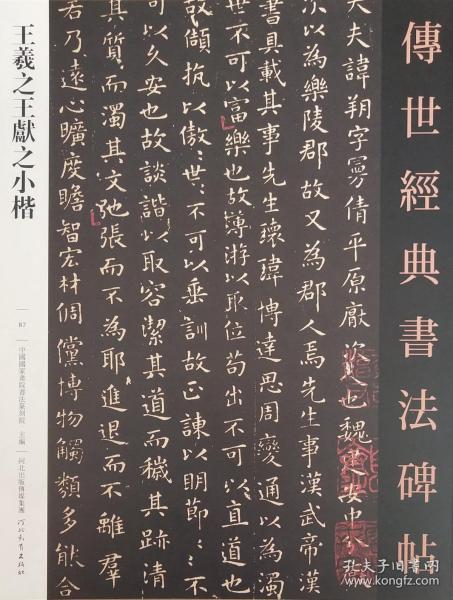 傳世經典書法碑帖
大夫諱朔字曼倩平原厭次人也魏建安中分厭
次以為樂陵郡故又為郡人焉先生事漢武帝漢
書具載其事先生瓌瑋博達思周變通以為濁
世不可以富樂也故薄游以取位苟出不可以直道也
故頡抗以傲〻世〻不可以垂訓故正諫以明節〻〻不
可以久安也故談諧以取容潔其道而穢其跡清
其質而濁其文弛張而不為耶進退而不離群
若乃遠心曠度瞻智宏材倜儻博物觸類多能合
王羲之王獻之小楷
87
中國國家畫院書法篆刻院 主編
河北出版傳媒集團
河北教育出版社
孔夫子旧书网
kongfz.com